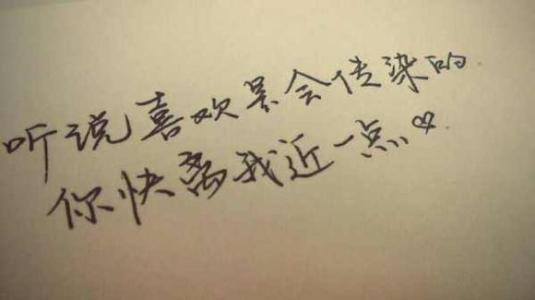 听说喜欢是会传染的
你快离我近一点♡